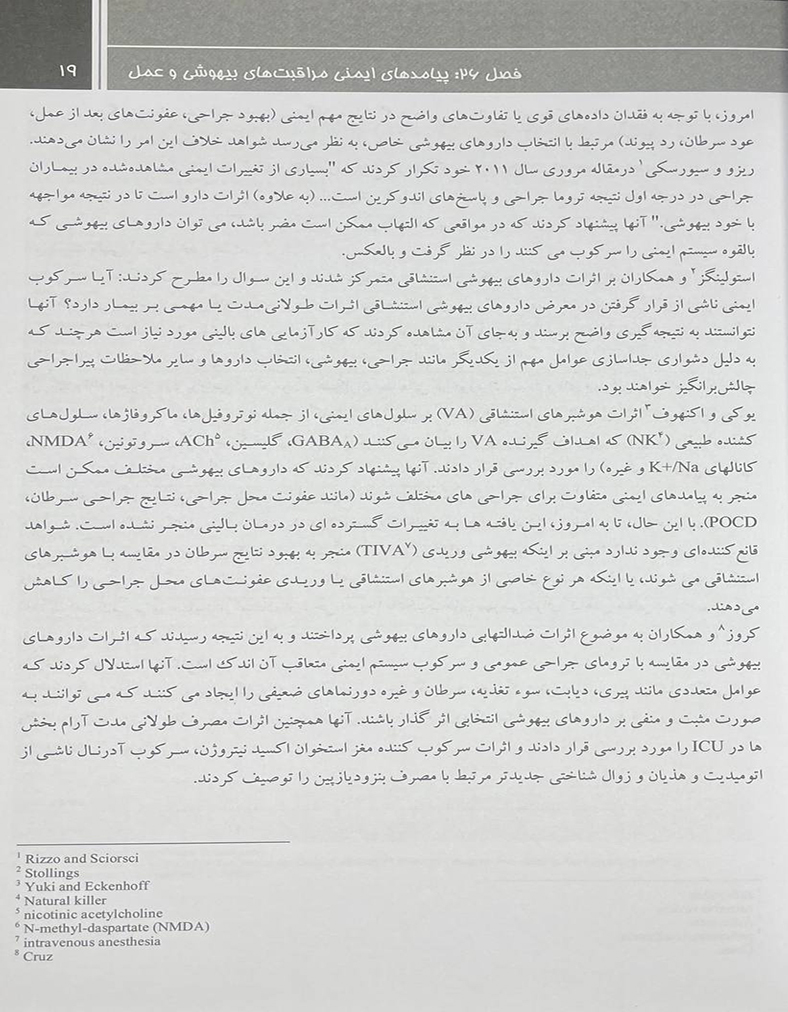 فصل ۲۶: پیامدهای ایمنی مراقبت‌های بیهوشی و عمل
۱۹
امروز، با توجه به فقدان داده‌های قوی یا تفاوت‌های واضح در نتایج مهم ایمنی (بهبود جراحی، عفونت‌های بعد از عمل،
عود سرطان، رد پیوند) مرتبط با انتخاب داروهای بیهوشی خاص، به نظر می‌رسد شواهد خلاف این امر را نشان می‌دهند.
ریزو و سیورسکی۱ درمقاله مروری سال ۲۰۱۱ خود تکرار کردند که "بسیاری از تغییرات ایمنی مشاهده‌شده در بیماران
جراحی در درجه اول نتیجه تروما جراحی و پاسخ‌های اندوکرین است... (به علاوه) اثرات دارو است تا در نتیجه مواجهه
با خود بیهوشی." آنها پیشنهاد کردند که در مواقعی که التهاب ممکن است مضر باشد، می توان داروهای بیهوشی که
بالقوه سیستم ایمنی را سرکوب می کنند را در نظر گرفت و بالعکس.
استولینگز۲ و همکاران بر اثرات داروهای بیهوشی استنشاقی متمرکز شدند و این سوال را مطرح کردند: آیا سرکوب
ایمنی ناشی از قرار گرفتن در معرض داروهای بیهوشی استنشاقی اثرات طولانی‌مدت یا مهمی بر بیمار دارد؟ آنها
نتوانستند به نتیجه‌گیری واضح برسند و به‌جای آن مشاهده کردند که کارآزمایی های بالینی مورد نیاز است هرچند که
به دلیل دشواری جداسازی عوامل مهم از یکدیگر مانند جراحی، بیهوشی، انتخاب داروها و سایر ملاحظات پیراجراحی
چالش‌برانگیز خواهند بود.
یوکی و اکنهوف۳ اثرات هوشبرهای استنشاقی (VA) بر سلول‌های ایمنی، از جمله نوتروفیل‌ها، ماکروفاژها، سلول‌های
کشنده طبیعی (NK۴) که اهداف گیرنده VA را بیان می‌کنند (GABAA، گلیسین، ACh۵، سروتونین، NMDA۶،
کانالهای K+/Na و غیره) را مورد بررسی قرار دادند. آنها پیشنهاد کردند که داروهای بیهوشی مختلف ممکن است
منجر به پیامدهای ایمنی متفاوت برای جراحی های مختلف شوند (مانند عفونت محل جراحی، نتایج جراحی سرطان،
POCD). با این حال، تا به امروز، این یافته ها به تغییرات گسترده ای در درمان بالینی منجر نشده است. شواهد
قانع‌کننده‌ای وجود ندارد مبنی بر اینکه بیهوشی وریدی (TIVA۷) منجر به بهبود نتایج سرطان در مقایسه با هوشبرهای
استنشاقی می شوند، یا اینکه هر نوع خاصی از هوشبرهای استنشاقی یا وریدی عفونت‌های محل جراحی را کاهش
می‌دهند.
کروز۸ و همکاران به موضوع اثرات ضدالتهابی داروهای بیهوشی پرداختند و به این نتیجه رسیدند که اثرات داروهای
بیهوشی در مقایسه با ترومای جراحی عمومی و سرکوب سیستم ایمنی متعاقب آن اندک است. آنها استدلال کردند که
عوامل متعددی مانند پیری، دیابت، سوء تغذیه، سرطان و غیره دورنماهای ضعیفی را ایجاد می کنند که می توانند به
صورت مثبت و منفی بر داروهای بیهوشی انتخابی اثر گذار باشند. آنها همچنین اثرات مصرف طولانی مدت آرام بخش
ها در ICU را مورد بررسی قرار دادند و اثرات سرکوب کننده مغز استخوان اکسید نیتروژن، سرکوب آدرنال ناشی از
اتومیدیت و هذیان و زوال شناختی جدیدتر مرتبط با مصرف بنزودیازپین را توصیف کردند.
1 Rizzo and Sciorsci
2 Stollings
3 Yuki and Eckenhoff
4 Natural killer
5 nicotinic acetylcholine
6 N-methyl-daspartate (NMDA)
7 intravenous anesthesia
8 Cruz